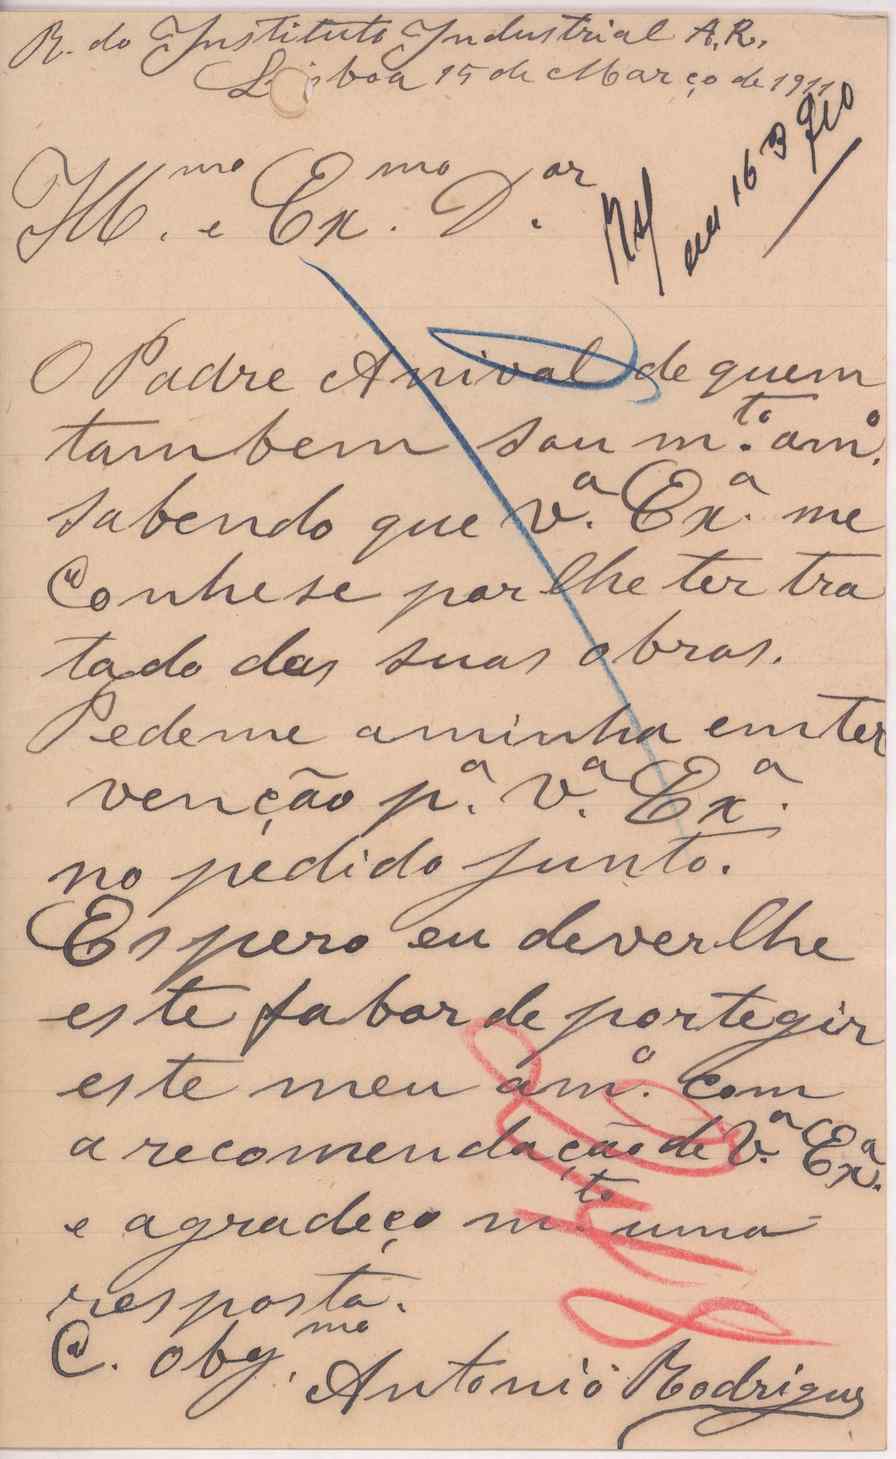 R. do Instituto Industrial A. R.
Lisboa 15 de Março de 1911
Ill.mo e Ex.mo D.or
em 16 3
O Padre Anival de quem
tambem sou m.to am.o
sabendo que V.a Ex.a me
Conhese por lhe ter tra
tado das suas obras.
Pedeme aminha emter
venção p.a V.a Ex.a
no pedido junto.
Espero eu deverlhe
este fabor de portegir
este meu am.o com
a recomendação de V.a Ex.a
e agradeço m.to uma
resposta.
C. obg.mo Antonio Rodrigues